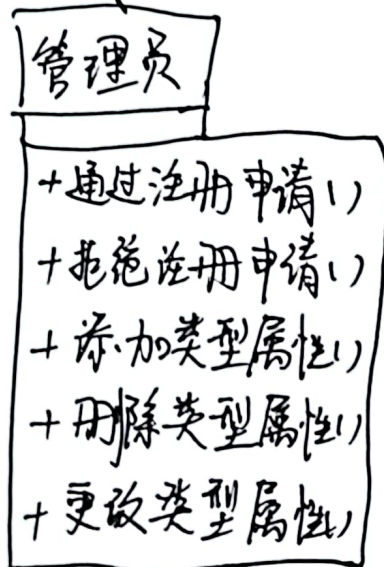 管理员
+通过注册申请()
+拒绝注册申请()
+添加类型属性()
+删除类型属性()
+更改类型属性()